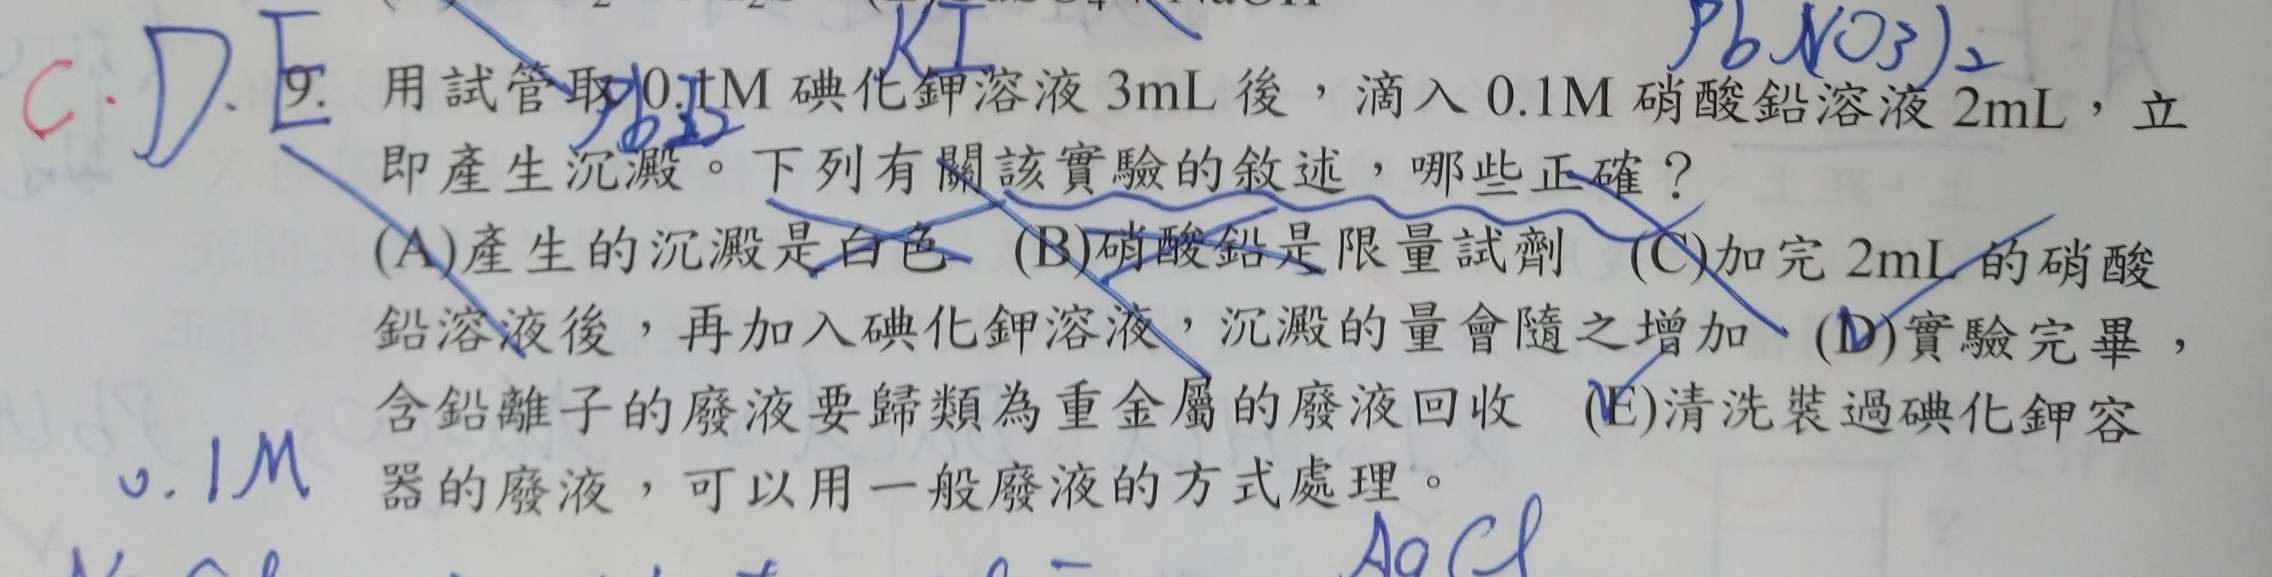 KI
Pb(NO3)2
C. D. E
9. 用試管取 0.1M 碘化鉀溶液 3mL 後，滴入 0.1M 硝酸鉛溶液 2mL，立
PbI2
即產生沉澱。下列有關該實驗的敘述，哪些正確？
(A)產生的沉澱是白色 (B)硝酸鉛是限量試劑 (C)加完 2mL 的硝酸
鉛溶液後，再加入碘化鉀溶液，沉澱的量會隨之增加 (D)實驗完畢，
含鉛離子的廢液要歸類為重金屬的廢液回收 (E)清洗裝過碘化鉀容
0.1M
器的廢液，可以用一般廢液的方式處理。
AgCl